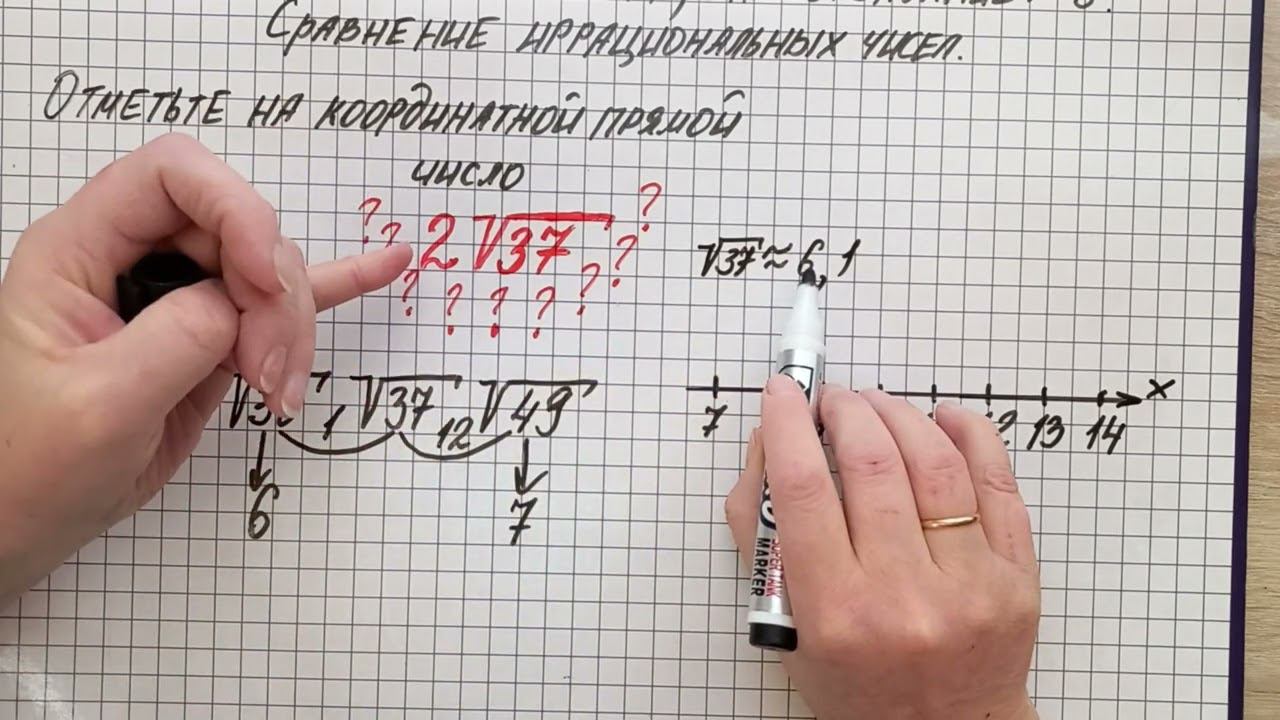 Сравнение иррациональных чисел.
Отметьте на координатной прямой
число
? ? ?
2√37 ?
? ? ? ? ?
√37 ≈ 6,1
√37 √49
1 12
6 7
7 13 14 x
SUPER TANK
MARKER